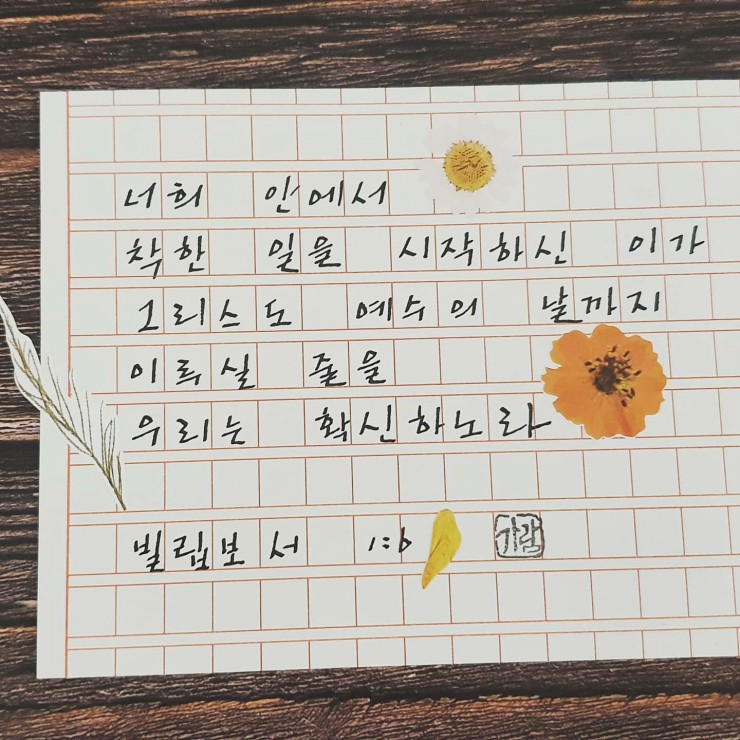 너희 안에서
착한 일을 시작하신 이가
그리스도 예수의 날까지
이루실 줄을
우리는 확신하노라
빌립보서 1:6
가감